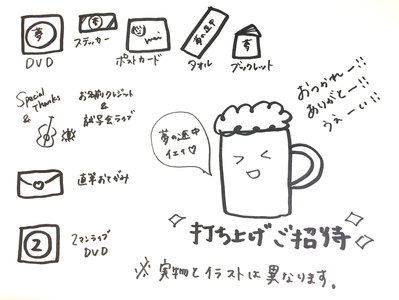 夢
夢
mai
夢の途中
夢
DVD
ステッカー
ポストカード
タオル
ブックレット
Special Thanks
&
お名前クレジット
&
試写会ライブ
直筆おてがみ
2
2マンライブ
DVD
夢の途中
イェイ♡
おつかれー!!
ありがとー!!
うぇーい!!
打ち上げご招待
※実物とイラストは異なります。